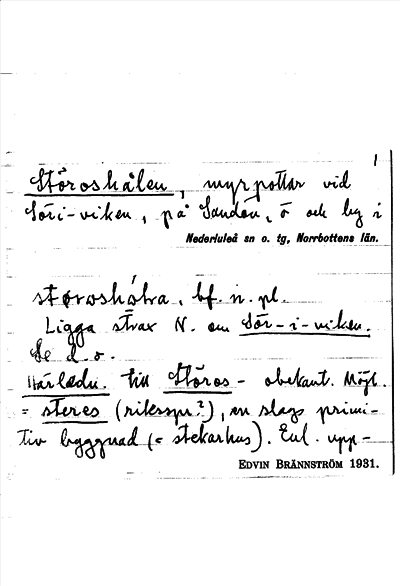 1
Störoshålen, myrpottar vid
Söri-viken, på Sandön, ö och by i
Nederluleå sn o. tg, Norrbottens län.
størəshåLra, bf. n. pl.
Ligga strax N. om Sör-i-viken.
Se d. o.
Härledn. till Störos- obekant. Möjl.
= steres (riksspr?), en slags primi-
tiv byggnad (= stekarhus). Enl. upp-
EDVIN BRÄNNSTRÖM 1931.